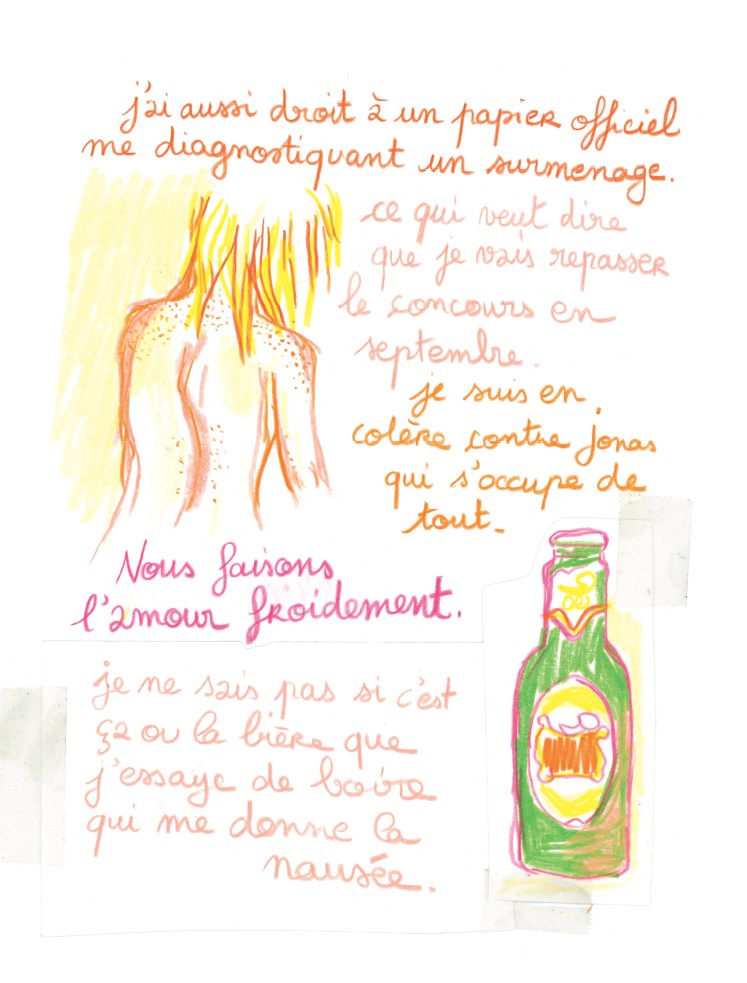 j'ai aussi droit à un papier officiel
me diagnostiquant un surmenage.
ce qui veut dire
que je vais repasser
le concours en
septembre.
je suis en
colère contre Jonas
qui s'occupe de
tout.
Nous faisons
l'amour froidement.
je ne sais pas si c'est
ça ou la bière que
j'essaye de boire
qui me donne la
nausée.